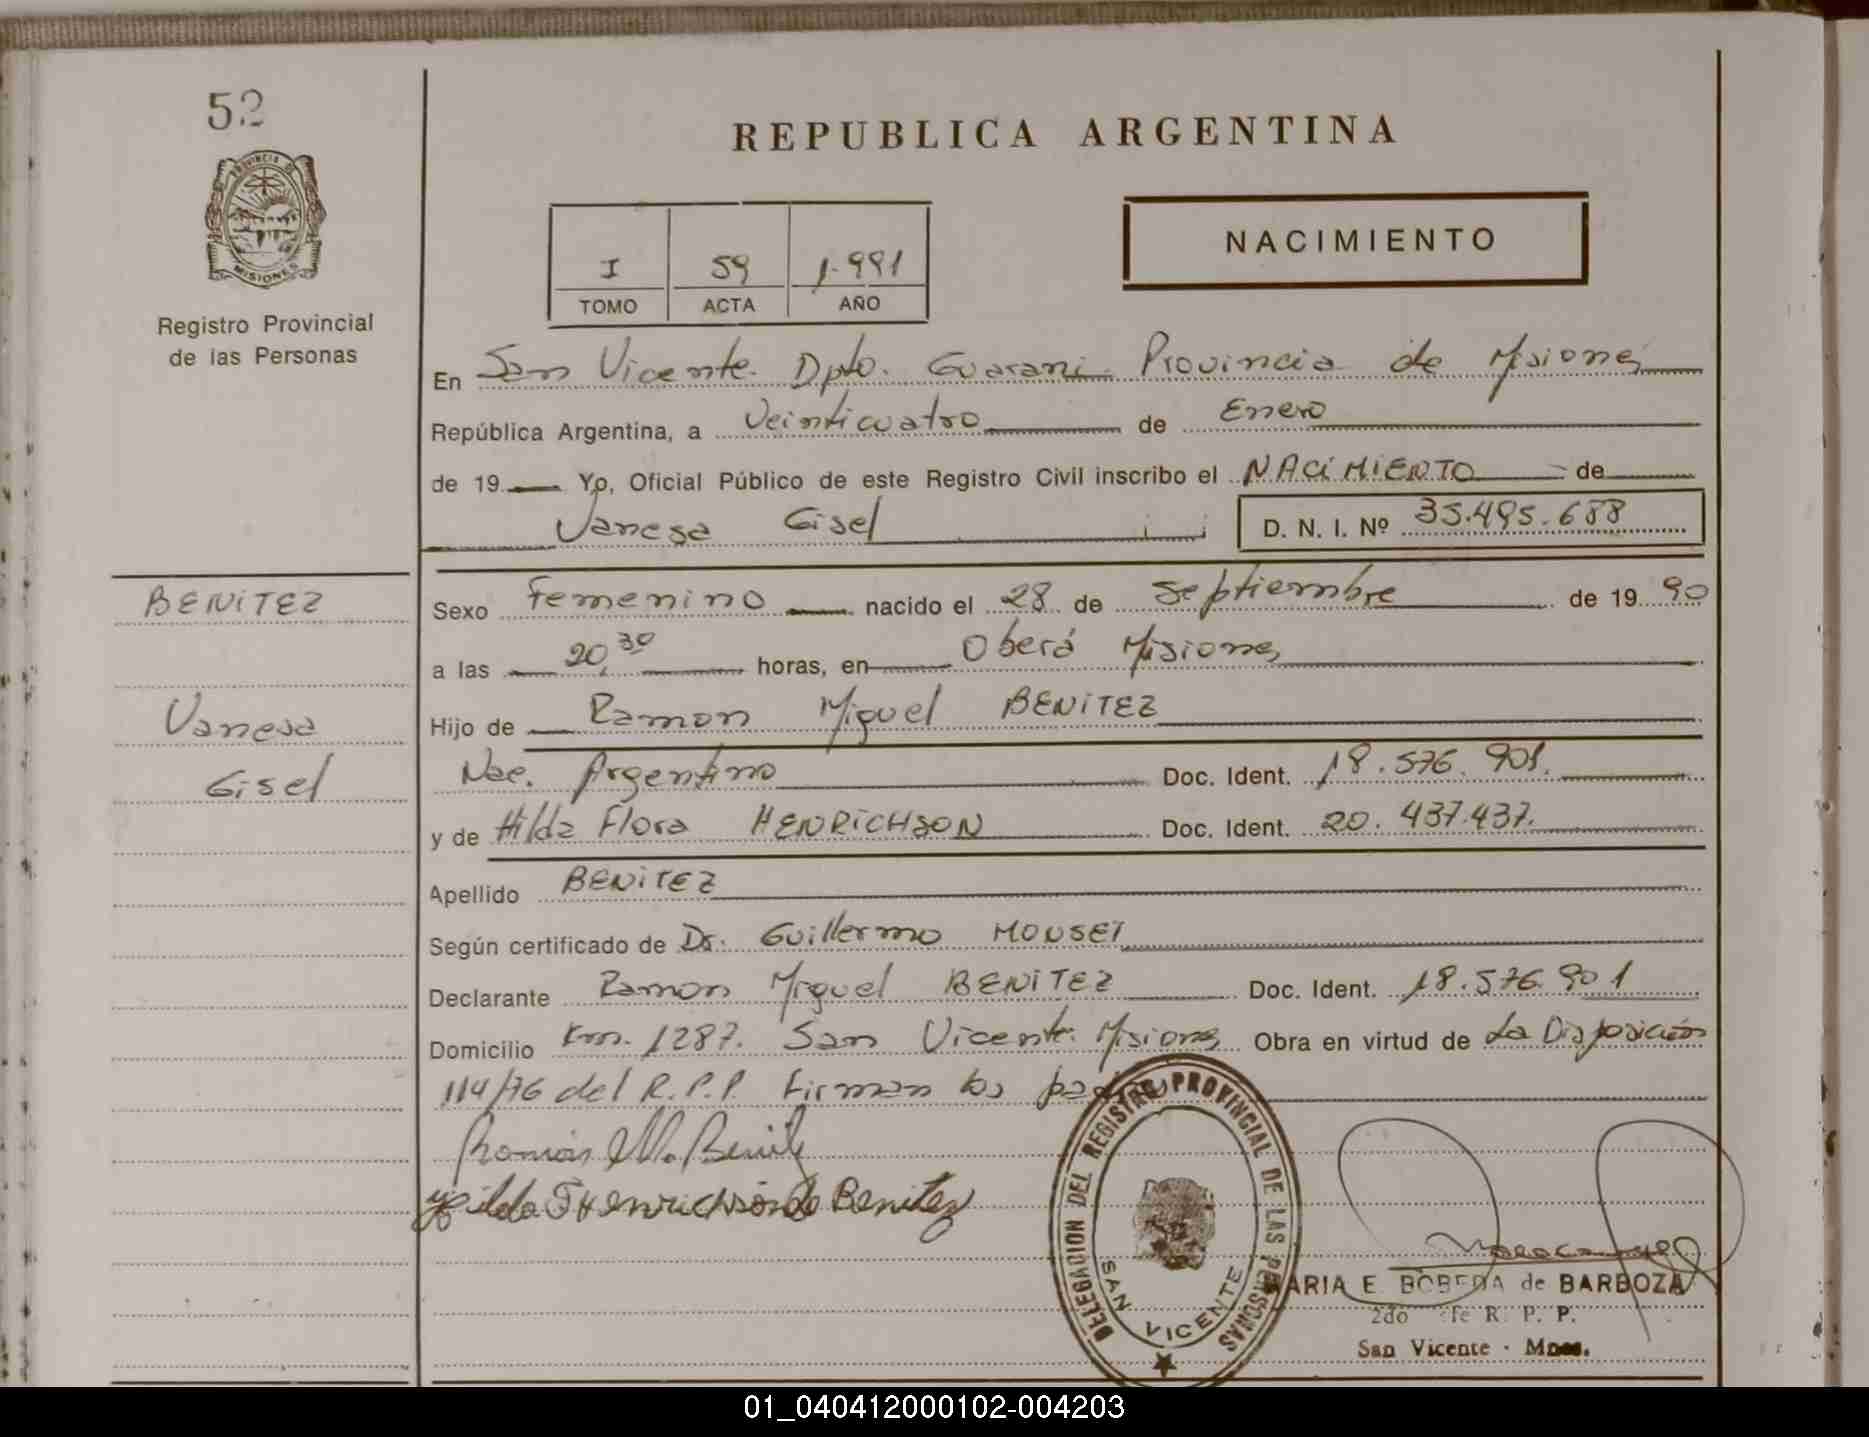 52
REPUBLICA ARGENTINA
PROVINCIA DE
MISIONES
NACIMIENTO
I 59 1.991
TOMO ACTA AÑO
Registro Provincial
de las Personas
En San Vicente. Dpto. Guarani. Provincia de Misiones
República Argentina, a Veinticuatro de Enero
de 19 Yo, Oficial Público de este Registro Civil inscribo el NACIMIENTO de
Vanesa Gisel D. N. I. Nº 35.495.688
BENITEZ
Sexo Femenino nacido el 28 de septiembre de 19 90
a las 20,30 horas, en Oberá Misiones
Vanesa
Hijo de Ramon Miguel BENITEZ
Gisel
Nac. Argentino Doc. Ident. 18.576.901.
y de Hilda Flora HENRICHSON Doc. Ident. 20.437.437.
Apellido BENITEZ
Según certificado de Dr. Guillermo MOUSET
Declarante Ramon Miguel BENITEZ Doc. Ident. 18.576.901
Domicilio Km. 1287. San Vicente. Misiones Obra en virtud de La Disposición
114/76 del R.P.P. Firman los padres
Ramón M. Benitez
Hilda F Henrichson de Benitez
DELEGACION DEL REGISTRO PROVINCIAL DE LAS PERSONAS
SAN VICENTE
MARIA E. BOBEDA de BARBOZA
2do Jefe R. P. P.
San Vicente - Mnes.
01_040412000102-004203